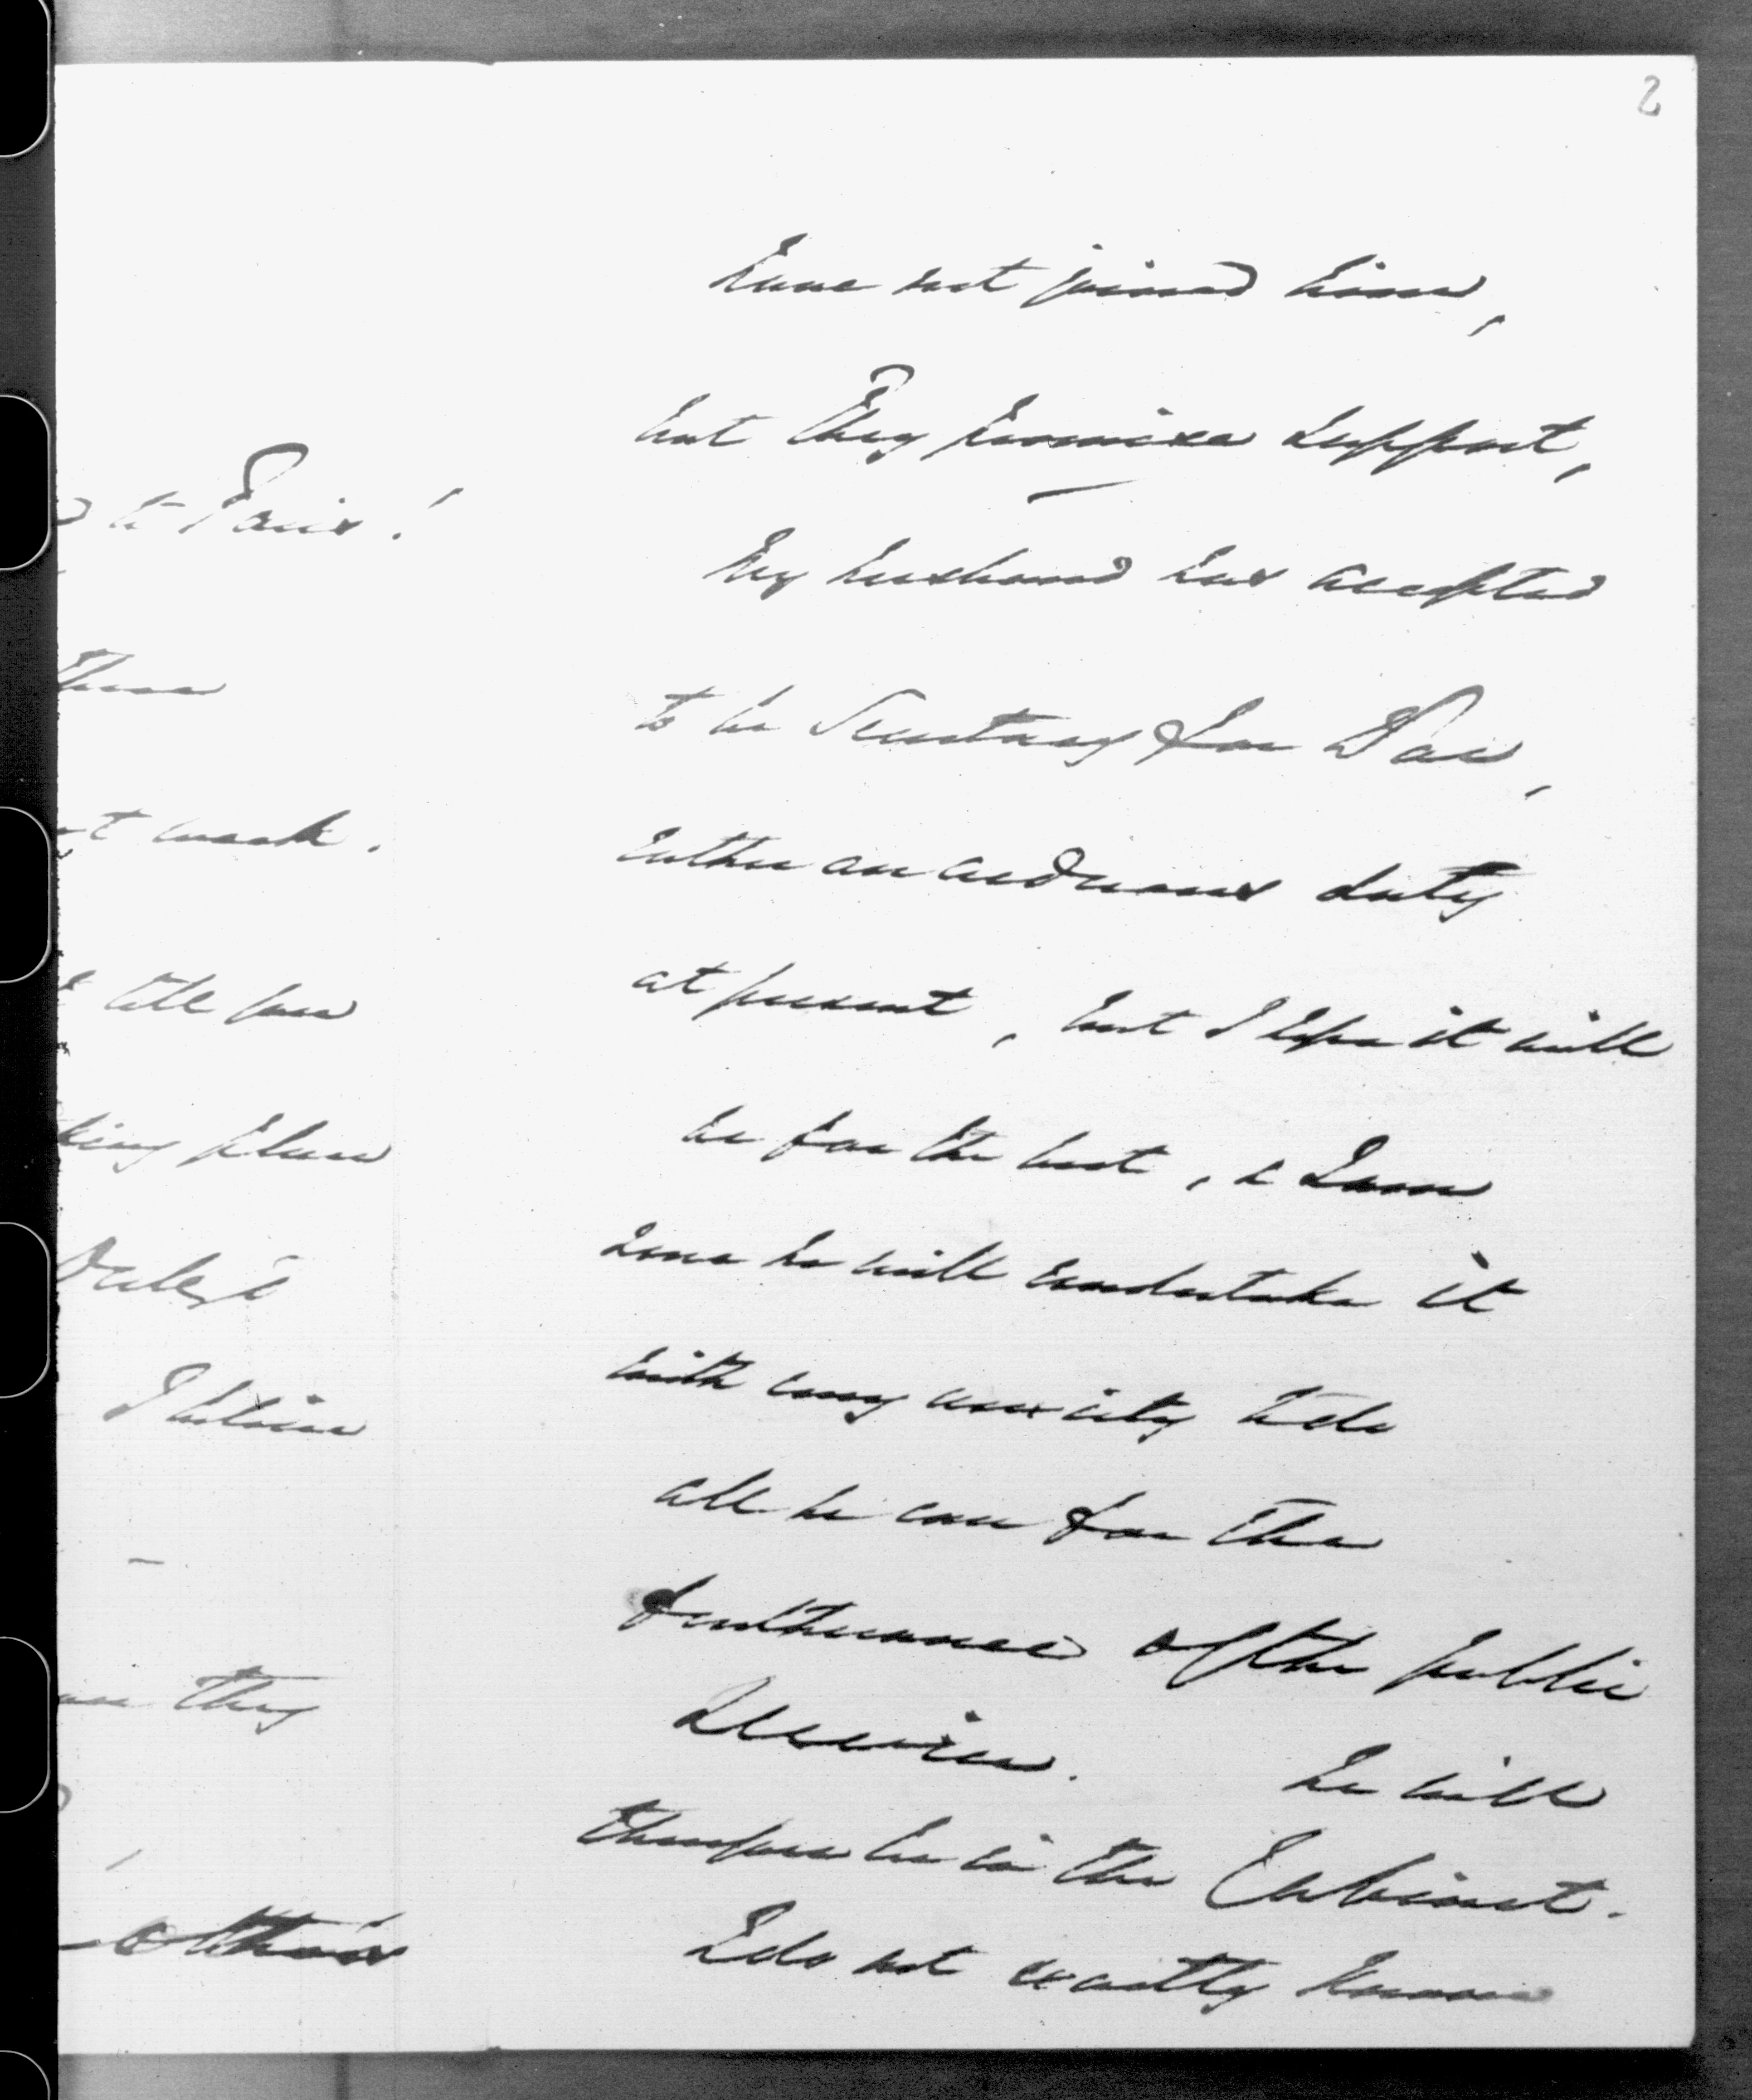 2
have not joined him,
but they promise support,
My husband has accepted
to be Secretary for War,
rather an arduous duty
at present, but I hope it will
be for the best, & I am
sure he will undertake it
with every anxiety to do
all he can for the
furtherance of the public
Service. He will
therefore be in the Cabinet.
I do not exactly know
to Paris!
them
t week.
till
king
I believe
they